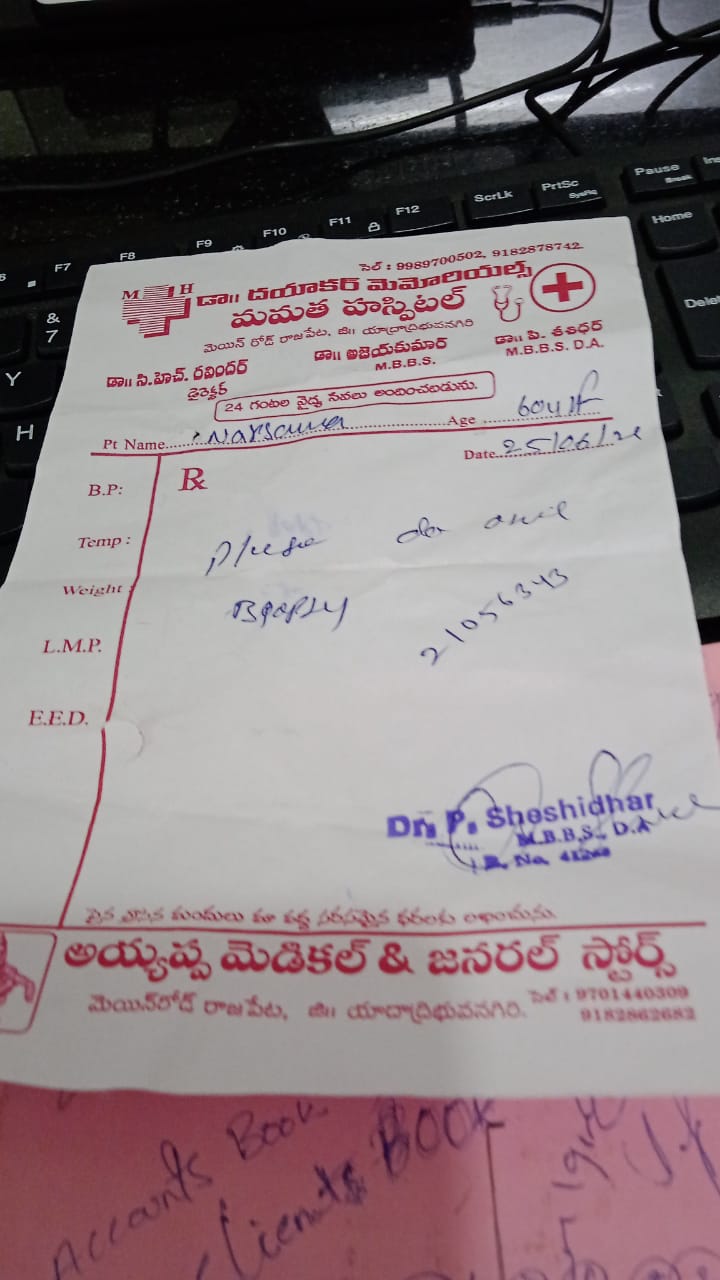 సెల్ : 9989700502, 9182878742
M H
డా॥ దయాకర్ మెమోరియల్స్
మమత హస్పిటల్
మెయిన్ రోడ్ రాజపేట, జి॥ యాద్రాద్రిభువనగిరి
డా॥ సి.హెచ్. రవిందర్ డా॥ అజెయ్‌కుమార్ డా॥ పి. శశిధర్
డైరెక్టర్ M.B.B.S. M.B.B.S. D.A.
24 గంటల వైద్య సేవలు అందించబడును.
Pt Name Age
Date 25/06/21
B.P: Rx
Temp : please do
Weight : 21056343
L.M.P.
E.E.D.
Dr. P. Sheshidhar
M.B.B.S., D.A
R. No.
అయ్యప్ప మెడికల్ & జనరల్ స్టోర్స్
మెయిన్‌రోడ్ రాజపేట, జి॥ యాదాద్రిభువనగిరి. సెల్ : 9701440309
9182862682
Accounts Book
Clients Book
F7 F8 F9 F10 F11 F12 ScrLk PrtSc SysRq Pause Break Ins
Home
Delete
&
7
Y
H